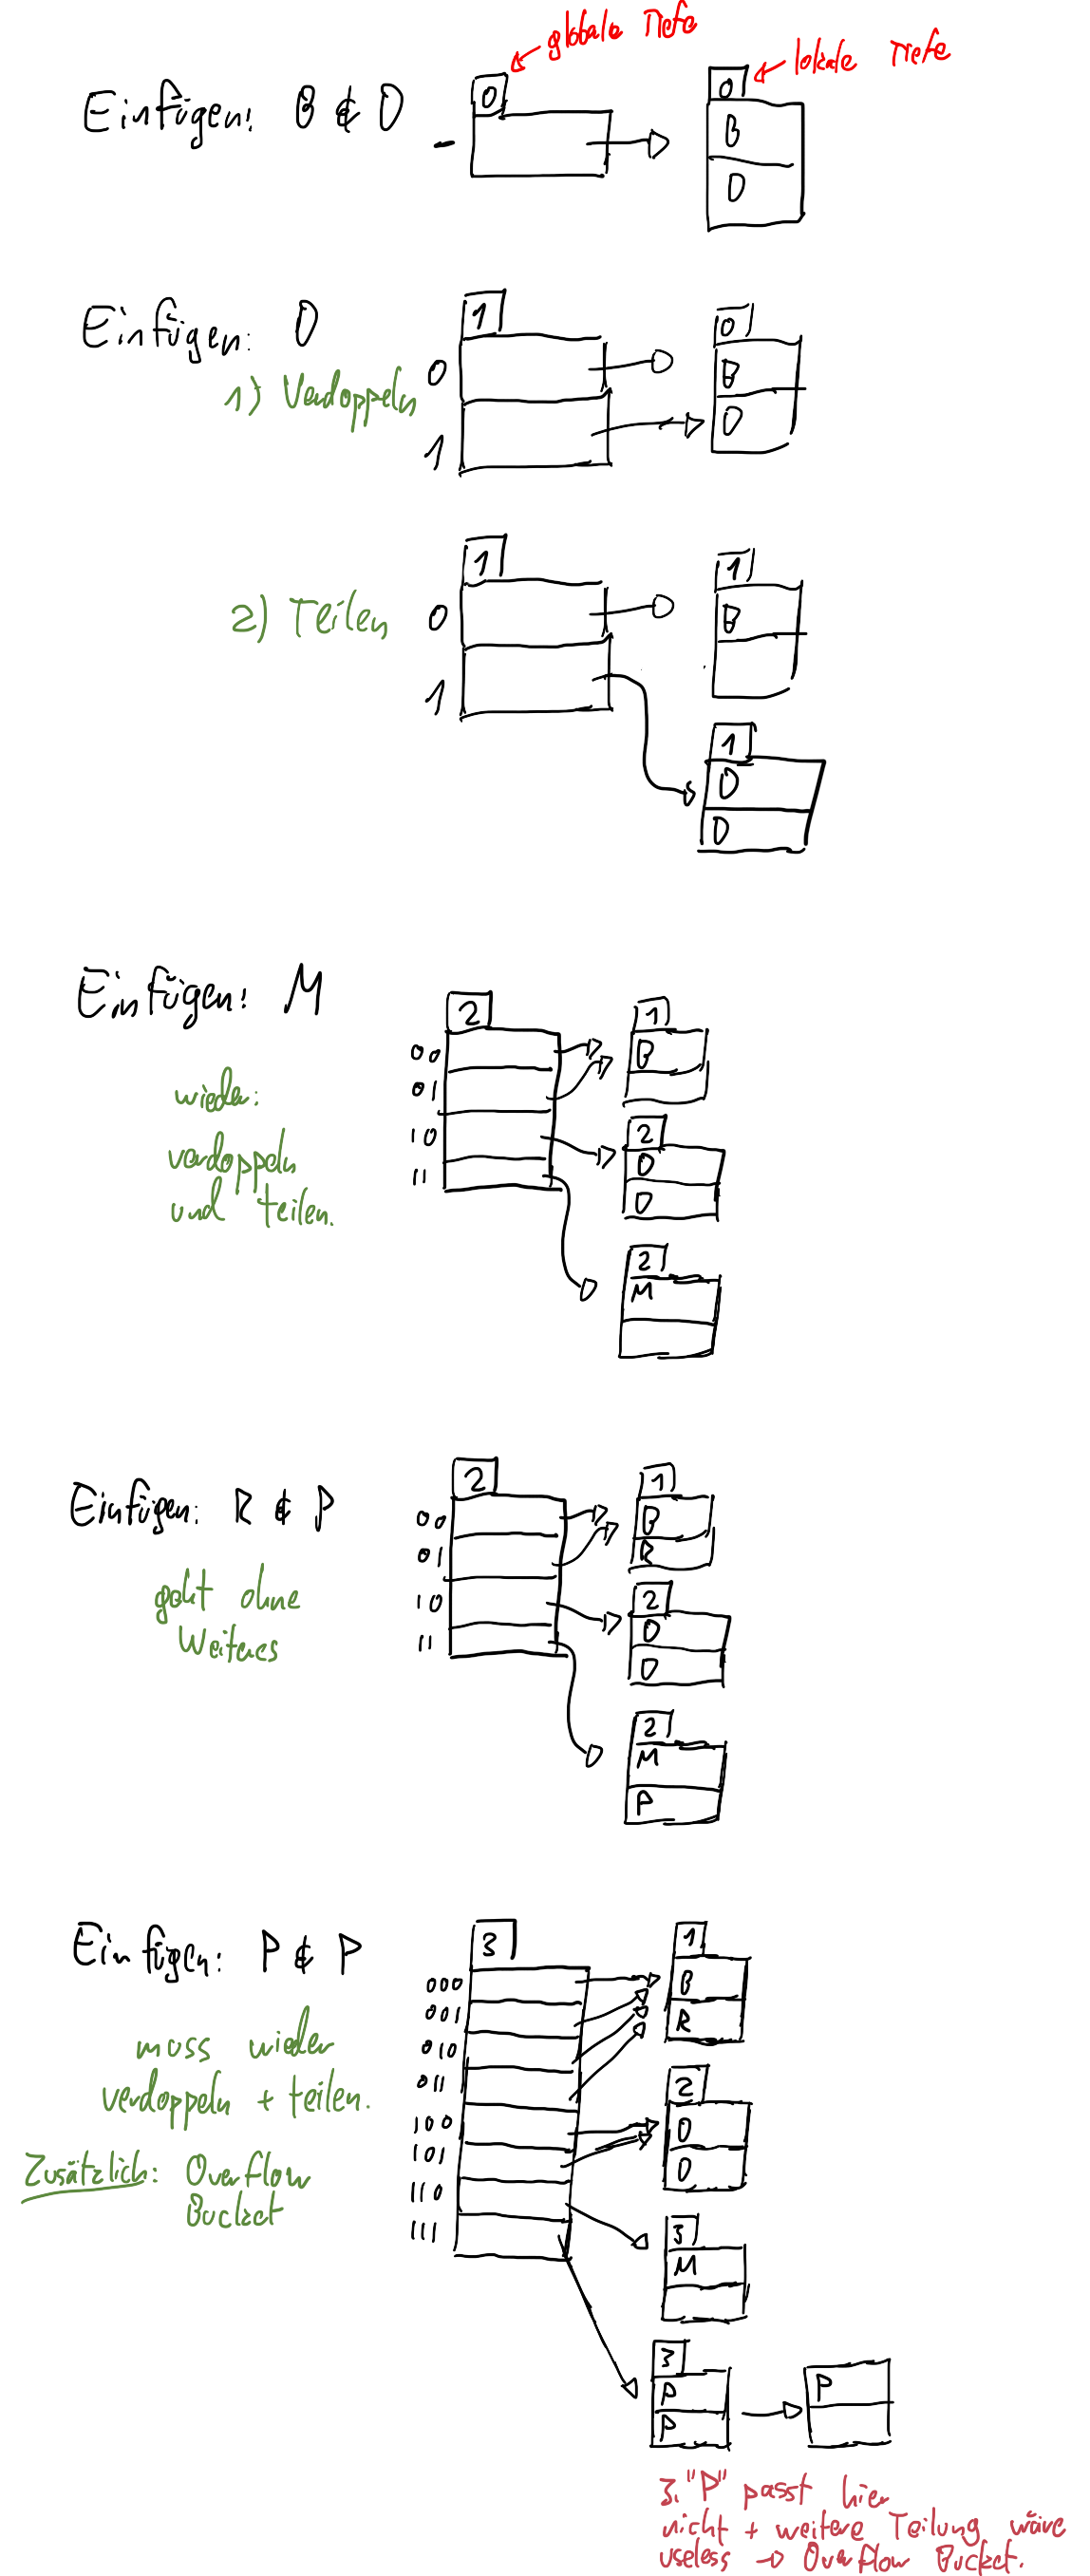 globale Tiefe
lokale Tiefe
Einfügen: B & D
0
0
-
B
D
Einfügen: D
1) Verdoppeln
1
0
1
0
B
D
2) Teilen
1
0
1
1
B
1
D
D
Einfügen: M
wieder:
verdoppeln
und teilen.
2
00
01
10
11
1
B
2
D
D
2
M
Einfügen: R & P
geht ohne
Weiteres
2
00
01
10
11
1
B
R
2
D
D
2
M
P
Einfügen: P & P
muss wieder
verdoppeln + teilen.
Zusätzlich: Overflow
Bucket
3
000
001
010
011
100
101
110
111
1
B
R
2
D
D
3
M
3
P
P
P
3. "P" passt hier
nicht + weitere Teilung wäre
useless → Overflow Bucket.